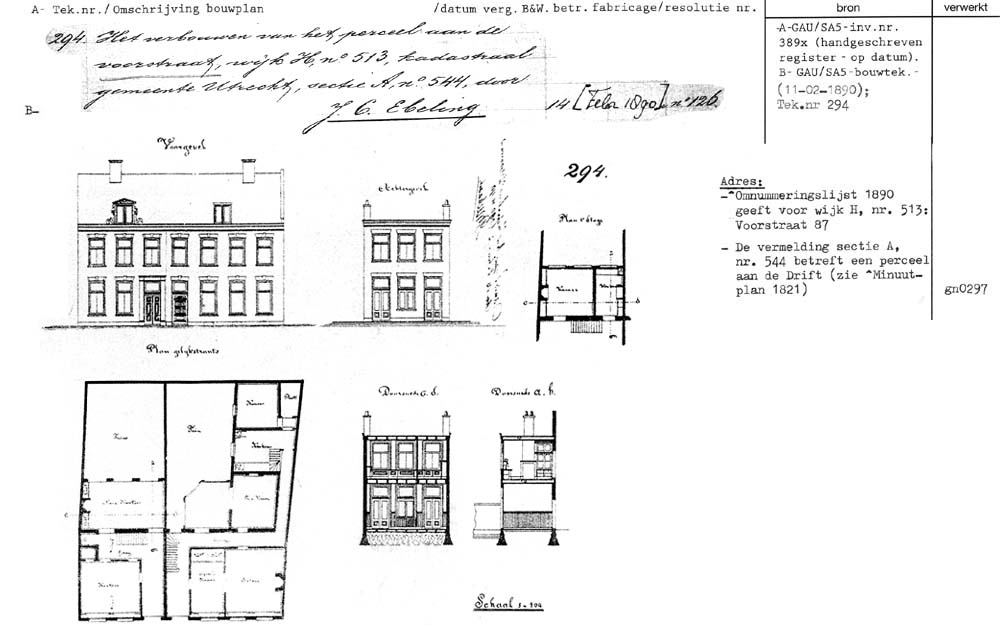 A- Tek.nr./Omschrijving bouwplan
/datum verg. B&W. betr. fabricage/resolutie nr.
bron
verwerkt
294. Het verbouwen van het perceel aan de
voorstraat, wijk H, no 513, kadastraal
gemeente Utrecht, sectie A, no 544, door
J. C. Ebeling
14 [Febr 1890] no 126.
B-
A-GAU/SA5-inv.nr.
389x (handgeschreven
register - op datum).
B- GAU/SA5-bouwtek.-
(11-02-1890);
Tek.nr 294
Voorgevel
Achtergevel
294.
Plan 1e Etage
Adres:
-^Omnummeringslijst 1890
geeft voor wijk H, nr. 513:
Voorstraat 87
- De vermelding sectie A,
nr. 544 betreft een perceel
aan de Drift (zie ^Minuut-
plan 1821)
gn0297
Plan gelijkstraats
Doorsnede c. d.
Doorsnede a. b.
Keuken
Gang
Schaal 1-